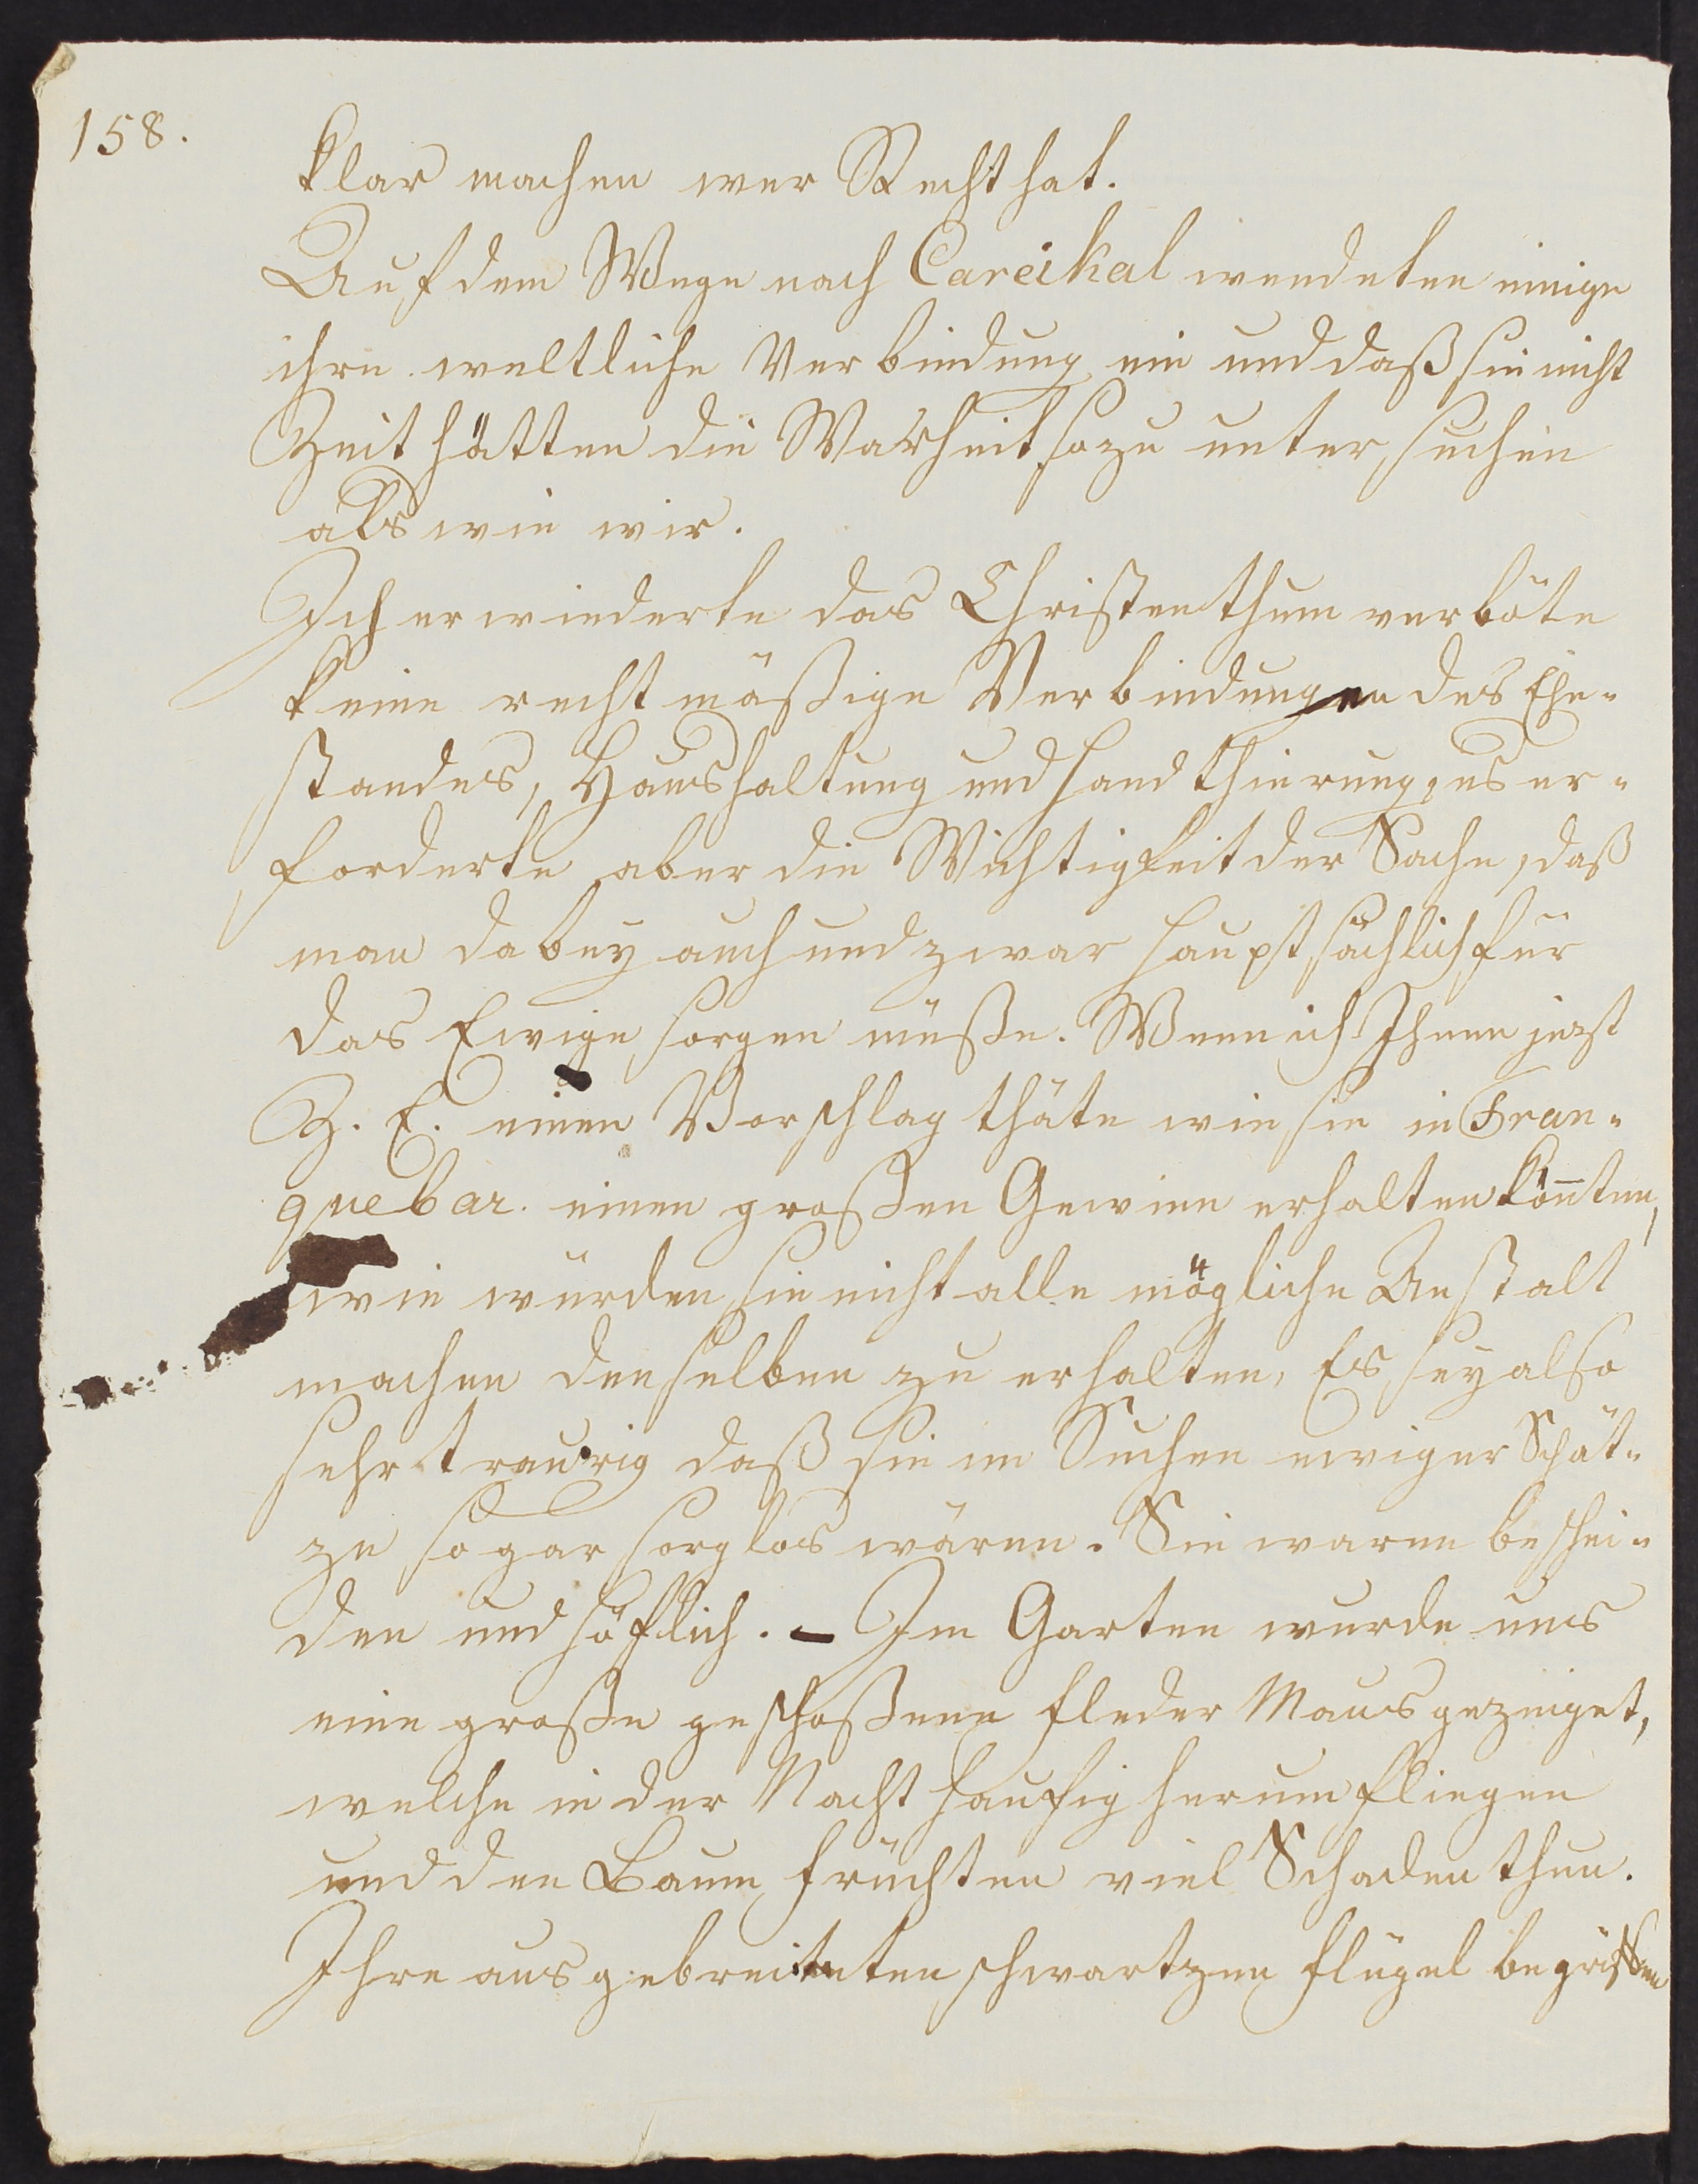 158.
klar machen wer Recht hat.
Auf dem Wege nach Careikal wendeten einige
ihre weltliche Verbindung ein und daß sie nicht
Zeit hätten die Warheit so zu unter suchen
als wie wir.
Ich erwiederte das Christenthum verböte
keine rechtmäßige Verbindungen des Ehe-
standes, Haushaltung und Handthierung, es er-
forderte aber die Wichtigkeit der Sache, daß
man dabey auch und zwar hauptsächlich für
das Ewige sorgen müße. Wenn ich Ihnen jezt
Z. E. einen Vorschlag thäte wie sie in Tran-
quebar. einen großen Gewinn erhalten kön̄ten,
wie würden sie nicht alle mögliche Anstalt
machen denselben zu erhalten, Es sey also
sehr traurig daß sie im Suchen ewiger Schät-
ze sogar sorglos wären. Sie waren beschei-
den und höflich. – Im Garten wurde uns
eine große geschoßene fleder Maus gezeiget,
welche in der Nacht haufig herum fliegen
und den Baum früchten viel Schaden thun.
Ihre ausgebreiteten schwartzen flügel begriffen